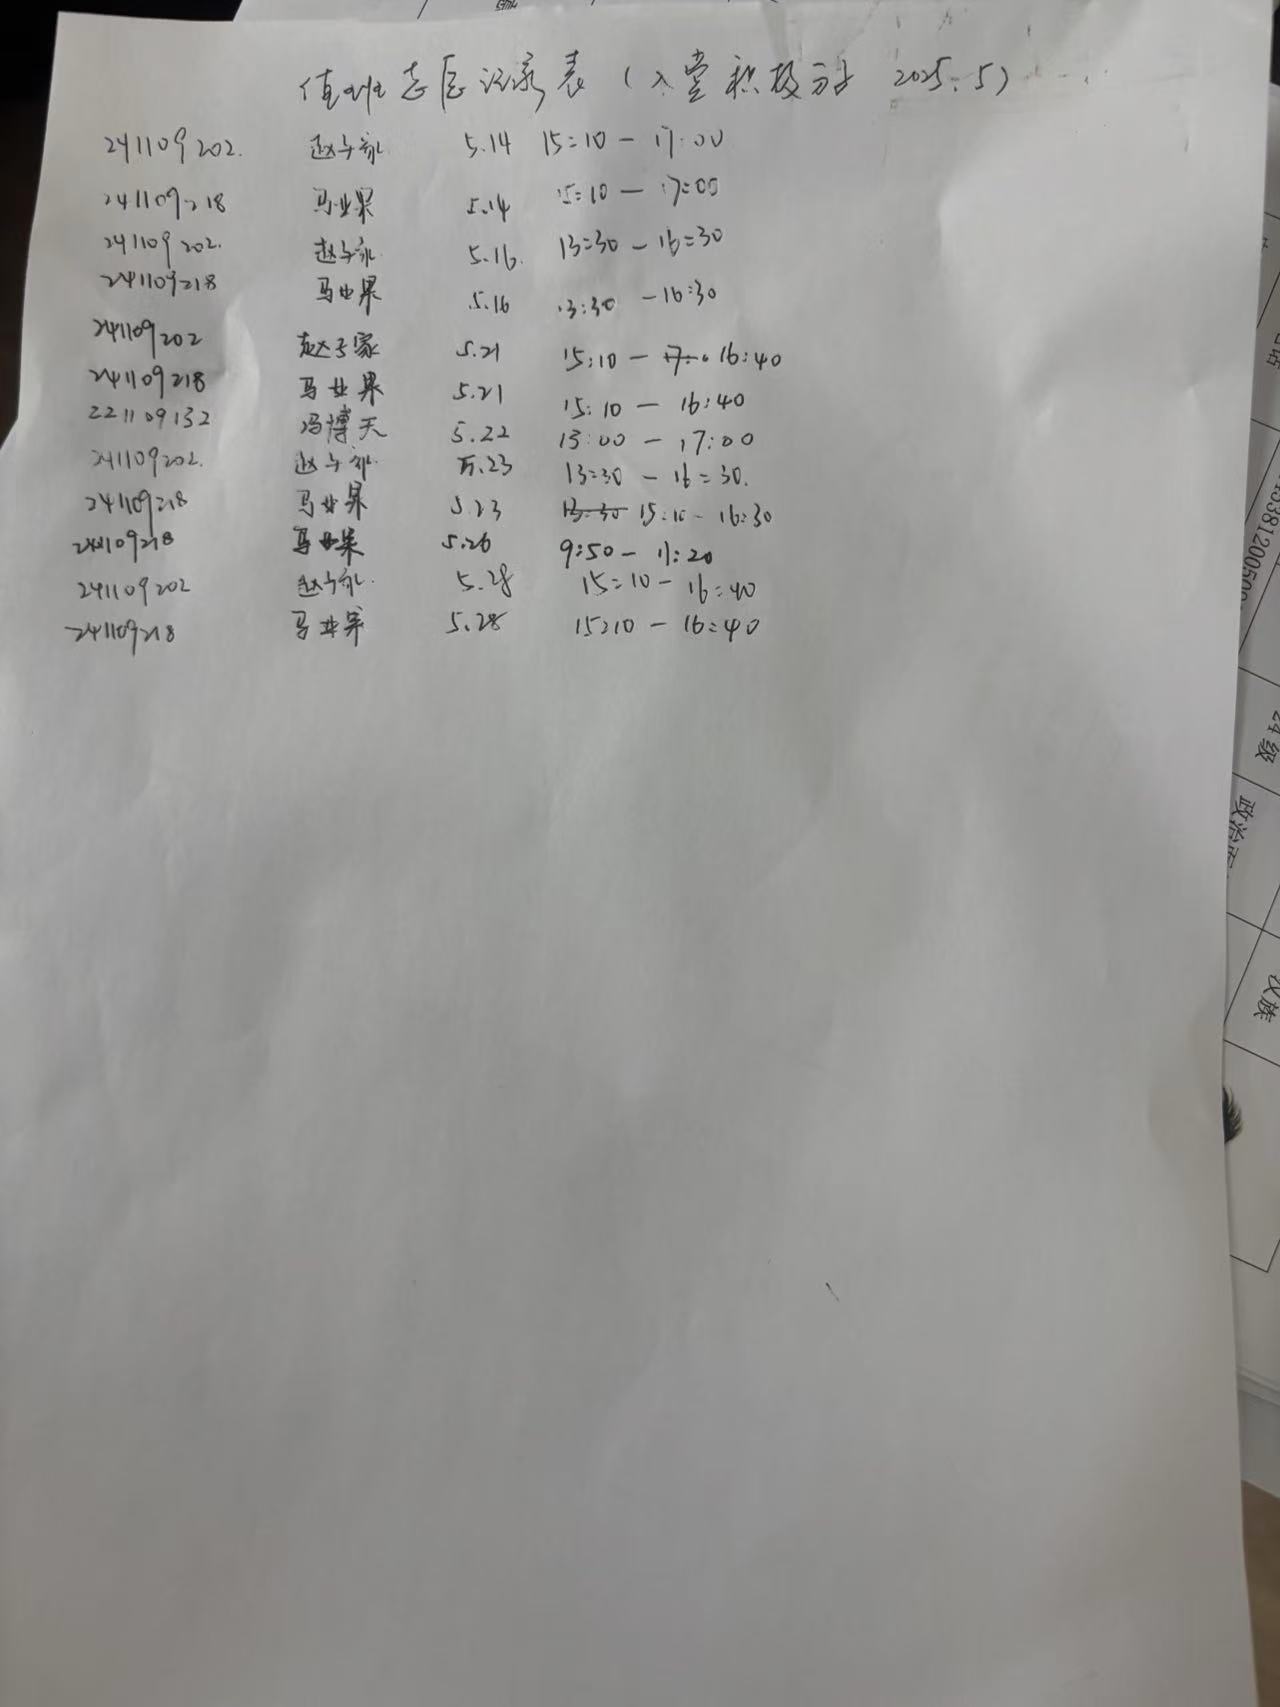 值班志愿记录表（入党积极分子 2025.5）
241109202. 赵子家 5.14 15:10 — 17:00
241109218 马业果 5.14 15:10 — 17:00
241109202. 赵子家 5.16. 13:30 — 16:30
241109218 马业果 5.16 13:30 — 16:30
241109202 赵子家 5.21 15:10 — 16:40
241109218 马业果 5.21 15:10 — 16:40
221109132 冯博天 5.22 13:00 — 17:00
241109202. 赵子家 5.23 13:30 — 16:30.
241109218 马业果 5.23 13:30 15:10 - 16:30
241109218 马业果 5.26 9:50 — 11:20
241109202 赵子家. 5.28 15:10 — 16:40
241109218 马业果 5.28 15:10 — 16:40
24级
政治
汉族